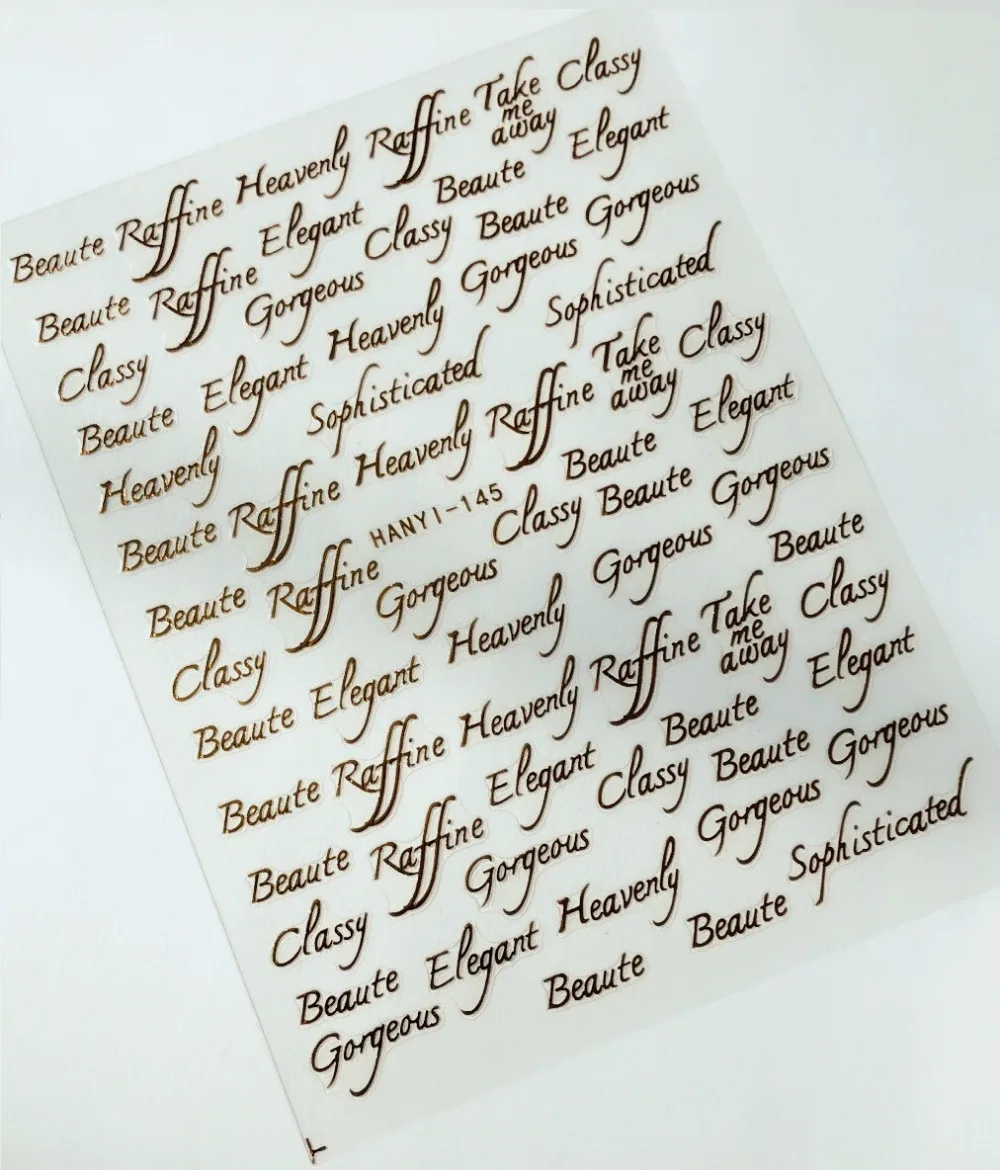 Beaute Raffine Heavenly Raffine Take me away Classy
Beaute Raffine Elegant Beaute Elegant
Classy Gorgeous Classy Beaute Gorgeous
Beaute Elegant Heavenly Gorgeous
Heavenly Sophisticated Sophisticated
Beaute Raffine Heavenly Raffine Take me away Classy
Beaute Raffine HANYI-145 Beaute Elegant
Classy Gorgeous Classy Beaute Gorgeous
Beaute Elegant Heavenly Gorgeous Beaute
Beaute Raffine Heavenly Raffine Take me away Classy
Beaute Raffine Elegant Beaute Elegant
Classy Gorgeous Classy Beaute Gorgeous
Beaute Elegant Heavenly Gorgeous
Gorgeous Beaute Beaute Sophisticated